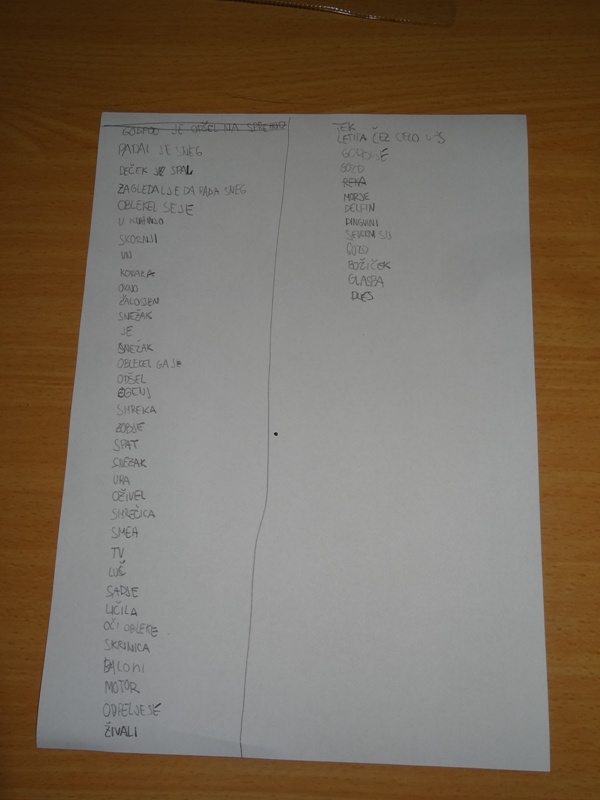 GOSPOD JE ODŠEL NA SPREHOD
PADAL JE SNEG
DEČEK JE SPAL
ZAGLEDAL JE DA PADA SNEG
OBLEKEL SE JE
V KUHINJO
ŠKORNJI
VN
KORAKA
OKNO
ŽALOSTEN
SNEŽAK
JE
SNEŽAK
OBLEKEL GA JE
ODŠEL
OGENJ
SMREKA
ZOBJE
SPAT
SNEŽAK
URA
OŽIVEL
SMREČICA
SMEH
TV
LUČ
SADJE
LIČILA
OČI OBLEKE
SKRINICA
BALONI
MOTOR
ODPELJE SE
ŽIVALI
TEK
LETITA ČEZ CELO
GOROVJE
GOZD
REKA
MORJE
DELFIN
PINGVINI
SEVERNI SIJ
GOZD
BOŽIČEK
GLASBA
PLES